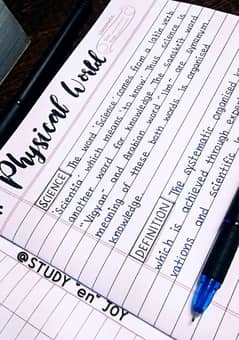 Physical World
SCIENCE The word 'Science' comes from a latin verb
'Scientia' which means 'to know'. Thus science is
another word for knowledge. The sanskrit word
"Vigyan" and Arabian word 'ilm' are synonym.
meaning of these both words is organised
knowledge
DEFINITION The systematic organised
which is achieved through
vations and scientific
@STUDY "en" JOY